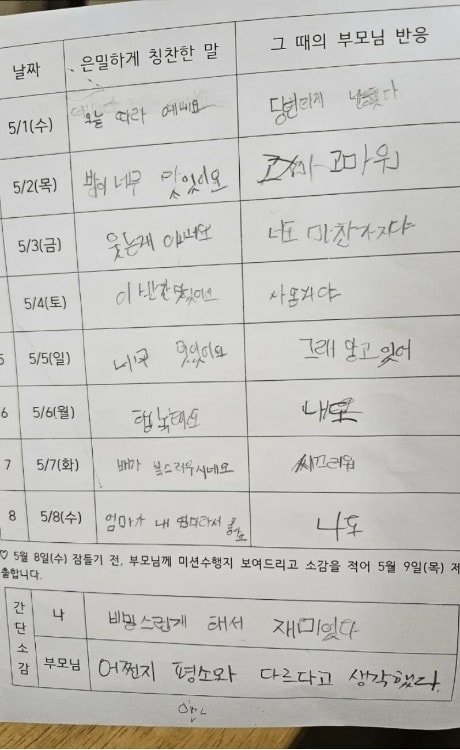 날짜 은밀하게 칭찬한 말 그 때의 부모님 반응
5/1(수) 오늘 따라 예뻐요 당연하게
5/2(목) 밥이 너무 맛있어요 고마워
5/3(금) 웃는게 너도 마찬가지야
5/4(토) 이 반찬 맛있어요 사춘기야
5 5/5(일) 너무 멋있어요 그래 알고있어
6 5/6(월) 행복해요 내도
7 5/7(화) 배가 볼스러우시네요 씨끄러워
8 5/8(수) 엄마가 내 엄마라서 좋아요 나도
♡ 5월 8일(수) 잠들기 전, 부모님께 미션수행지 보여드리고 소감을 적어 5월 9일(목) 제
출합니다.
간단소감
나 비밀스럽게 해서 재미있다
부모님 어쩐지 평소와 다르다고 생각했다.